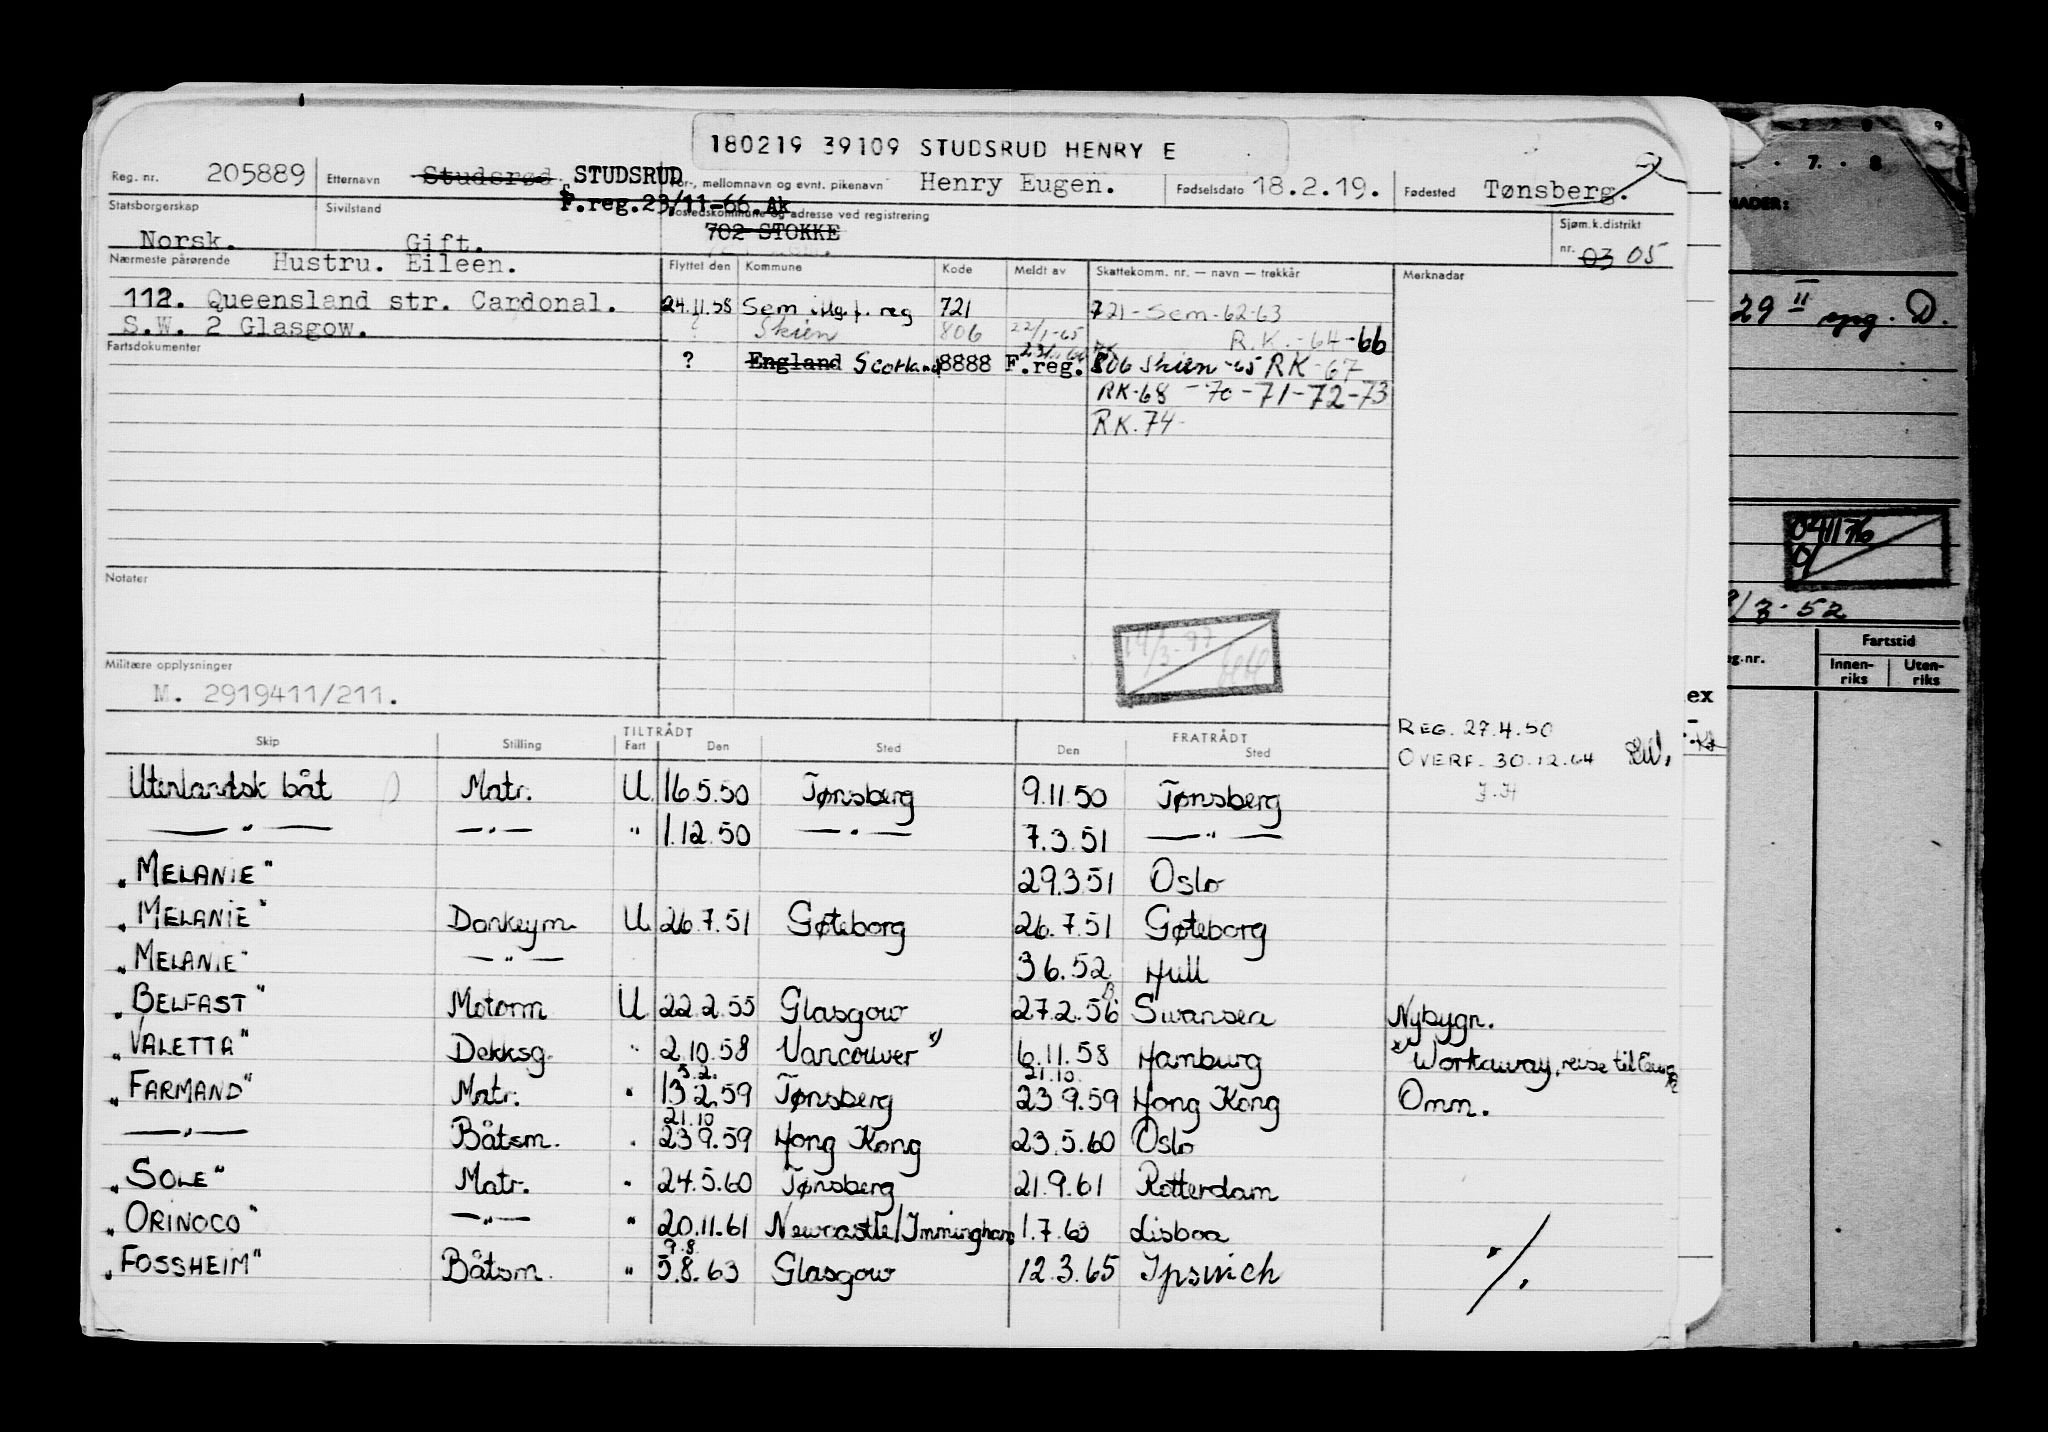 180219 39109 STUDSRUD HENRY E
Reg. nr. 205889 Etternavn Studsrød. STUDSRUD For-, mellomnavn og evnt. pikenavn Henry Eugen. Fødselsdato 18.2.19. Fødested Tønsberg.
F.reg.23/11-66. Ak
Statsborgerskap Sivilstand Bostedskommune og adresse ved registrering Sjøm.k.distrikt
Norsk. Gift. 702 STOKKE nr. 03 05
Nærmeste pårørende Hustru. Eileen. Flyttet den Kommune Kode Meldt av Skattekomm. nr. — navn — trekkår Merknader
112. Queensland str. Cardonal. 24.11.58 Sem reg 721 721 - Sem - 62-63
S.W. 2 Glasgow. ? Skien 806 22/1-65 R.K. - 64 - 66
Fartsdokumenter ? England Scotland 8888 F.reg. 806 Skien -65 RK - 67
RK-68 - 70 - 71 - 72 - 73
R.K. 74 -
Notater
Militære opplysninger
M. 2919411/211.
REG. 27.4.50
OVERF. 30.12.64
J.H
TILTRÅDT FRATRÅDT
Skip Stilling Fart Den Sted Den Sted
Utenlandsk båt Matr. U 16.5.50 Tønsberg 9.11.50 Tønsberg
— " — — " — " 1.12.50 — " — 7.3.51 — " —
„MELANIE" 29.3.51 Oslo
„MELANIE" Donkeym. U 26.7.51 Gøteborg 26.7.51 Gøteborg
„MELANIE" — " — 3 6.52 Hull
„BELFAST" Motorm U 22.2.55 Glasgow 27.2.56 Swansea Nybygn.
„VALETTA" Dekksg. " 2.10.58 Vancouver x) 6.11.58 Hamburg x) Workaway, reise til
5.2. 21.10
„FARMAND" Matr. " 13 2.59 Tønsberg 23 9.59 Hong Kong Omm.
21.10
— " — Båtsm. " 23 9.59 Hong Kong 23.5.60 Oslo
„SOLE" Matr. " 24.5.60 Tønsberg 21.9.61 Rotterdam
„ORINOCO" — " — " 20.11.61 Newcastle/Immingham 1.7.63 Lisboa
9.8.
„FOSSHEIM" Båtsm. " 5.8.63 Glasgow 12.3.65 Ipswich
./.
7. 8
29 II D.
041176
3-52
Fartstid
Innen-riks Uten-riks